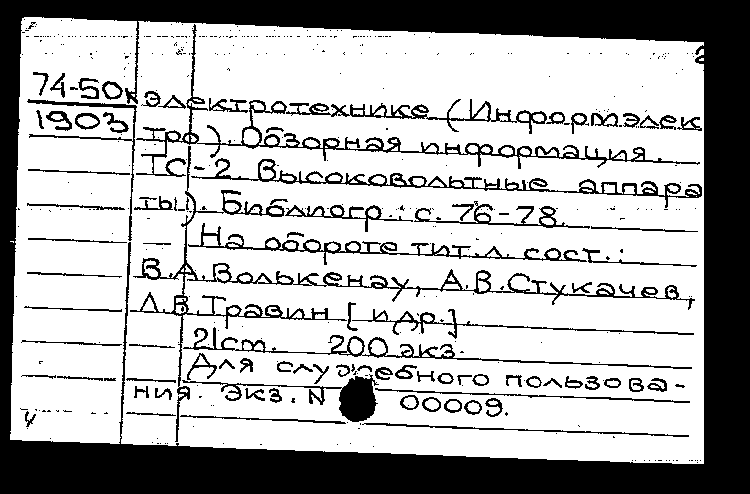 2
74-50к электротехнике (Информэлек
1903
тро). Обзорная информация.
ТС-2. Высоковольтные аппара
ты). Библиогр.: с. 76-78.
На обороте тит.л. сост.:
В.А.Волькенау, А.В.Стукачев,
Л.В.Травин [и др.].
21см. 200 экз.
Для служебного пользова-
ния. Экз. N 00009.